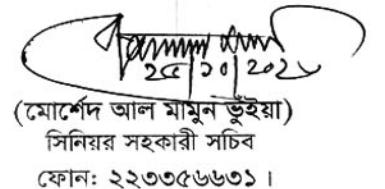 ২৫|১০|২০২৮
(মোর্শেদ আল মামুন ভূঁইয়া)
সিনিয়র সহকারী সচিব
ফোনঃ ২২৩৩৫৬৬৩১।